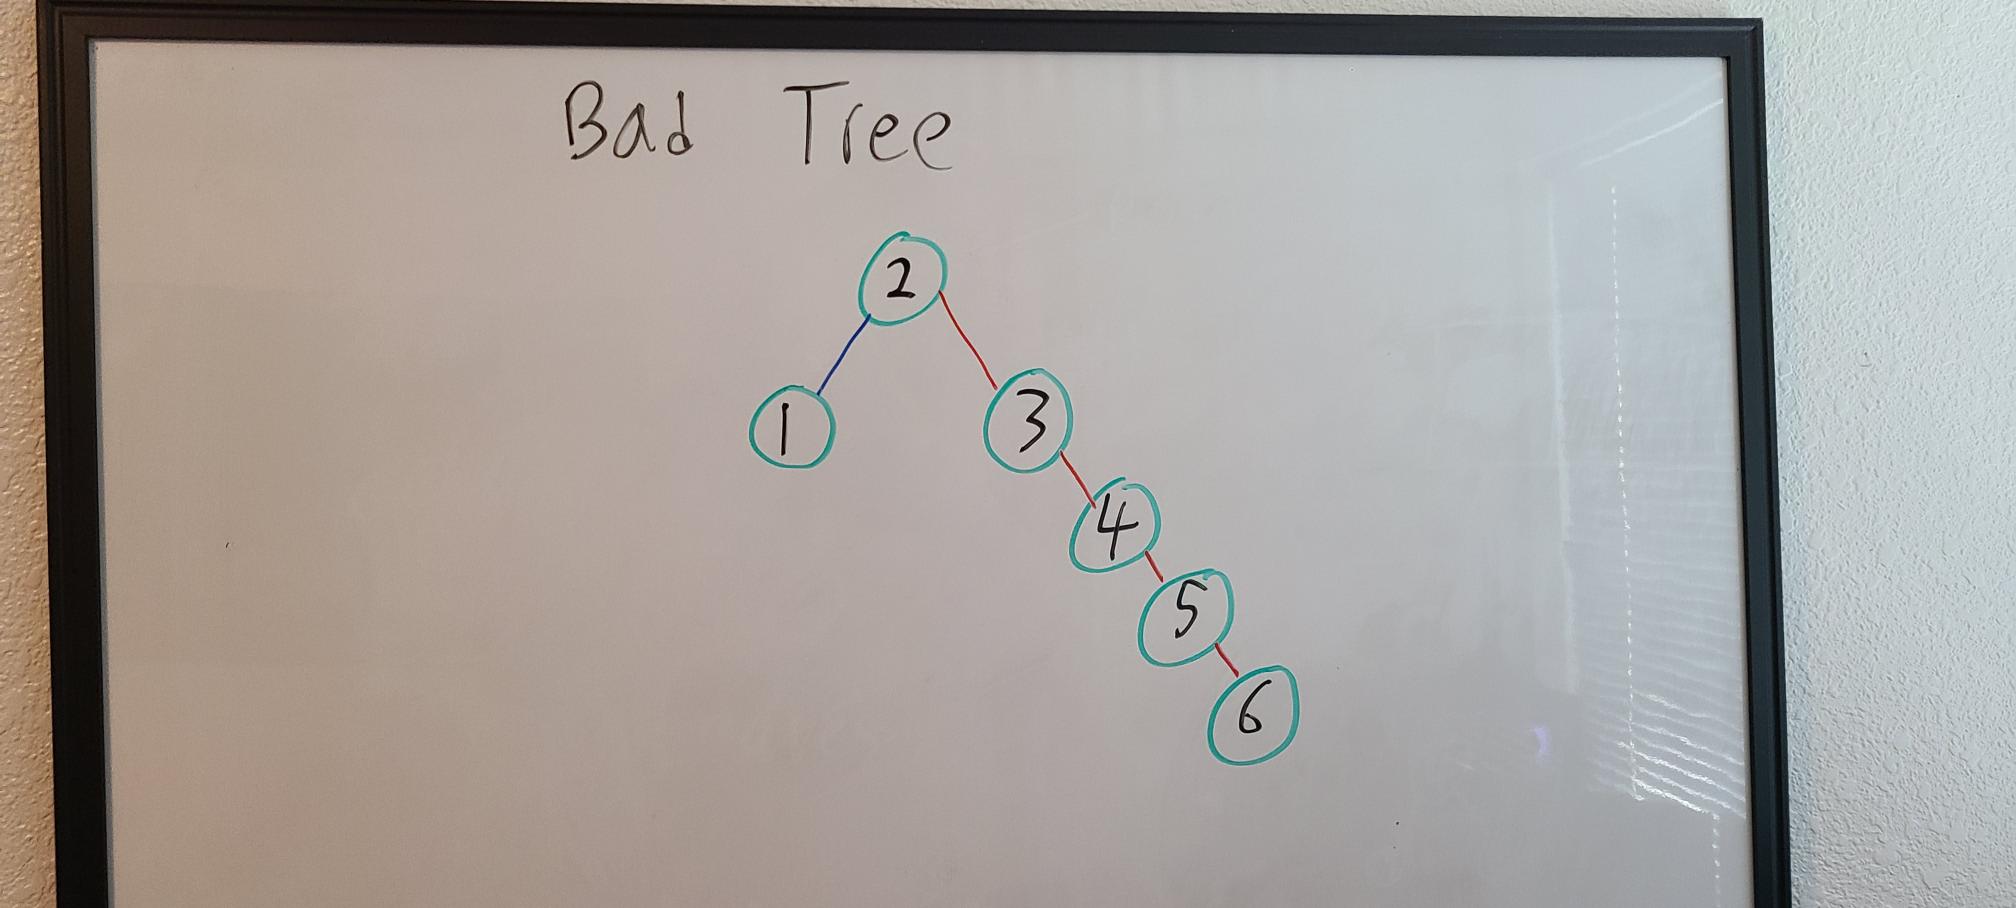 Bad Tree
2
1 3
4
5
6